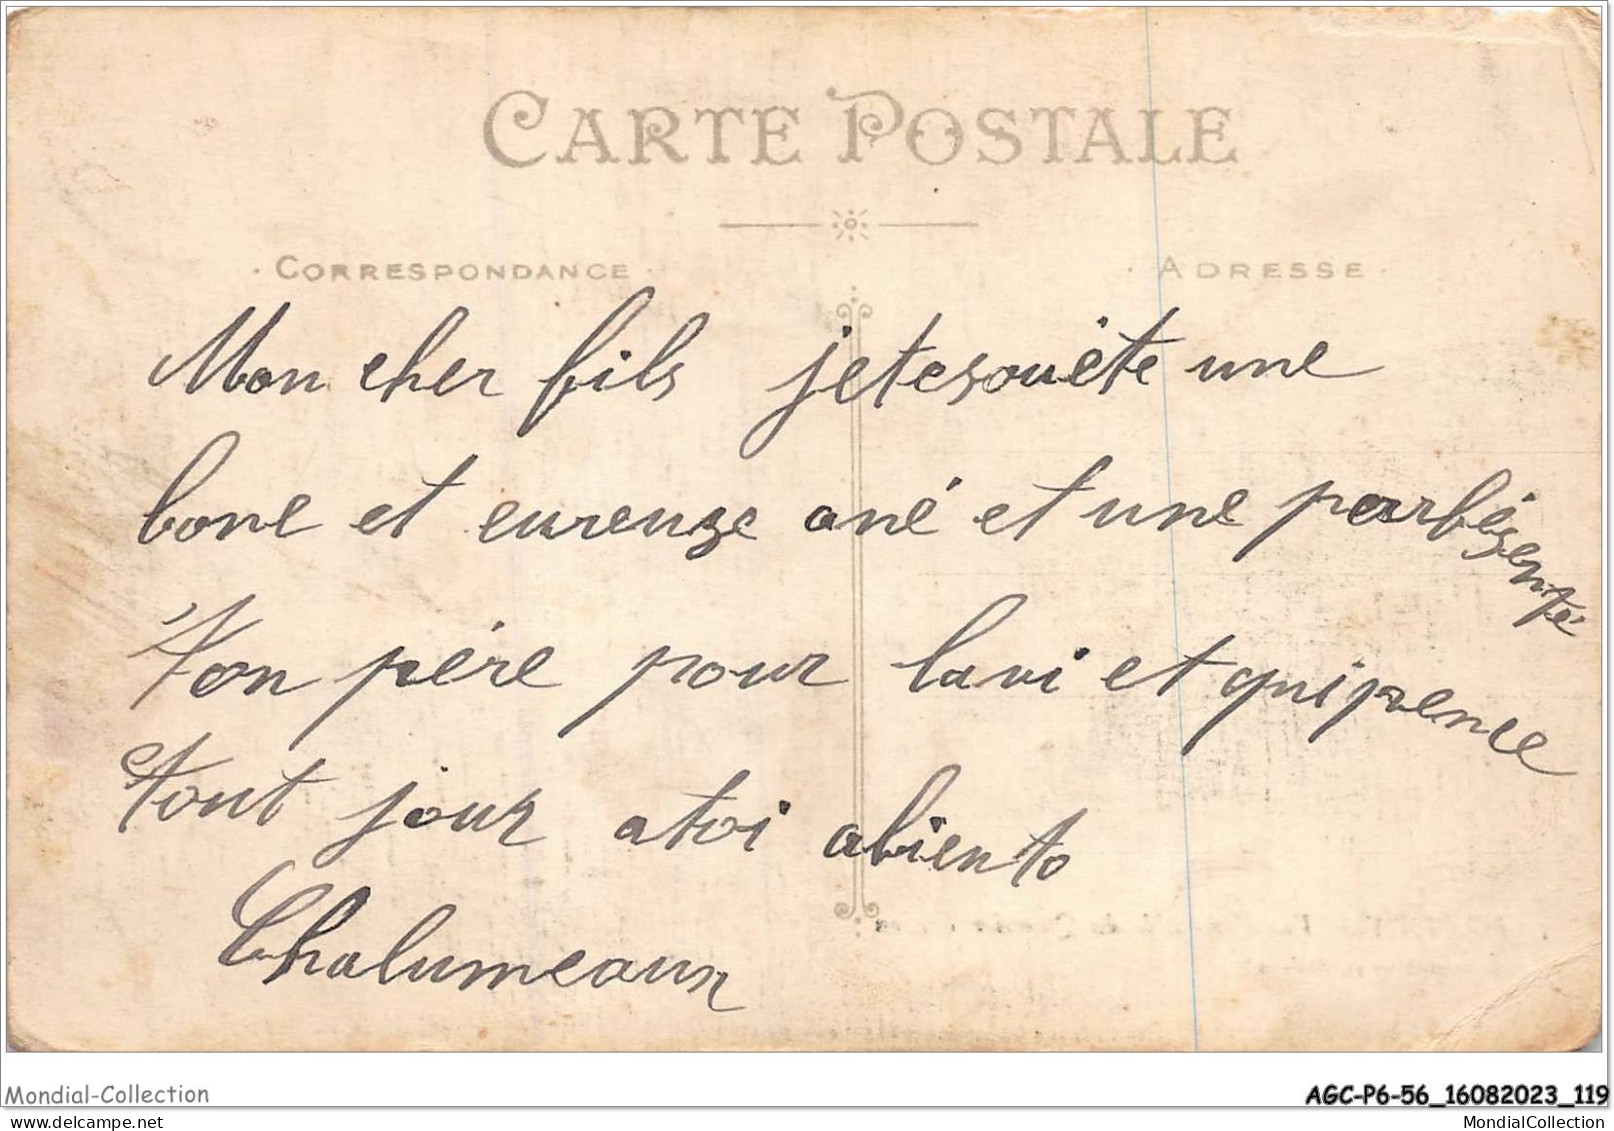 CARTE POSTALE
CORRESPONDANCE
ADRESSE
Mon cher fils jetesouète une
bone et eureuze ané et une parfésenté
Ton père pour lavi et quipence
tout jour atoi abiento
Chalumeaux
Mondial-Collection
AGC-P6-56_16082023_119
delcampe.net
MondialCollection